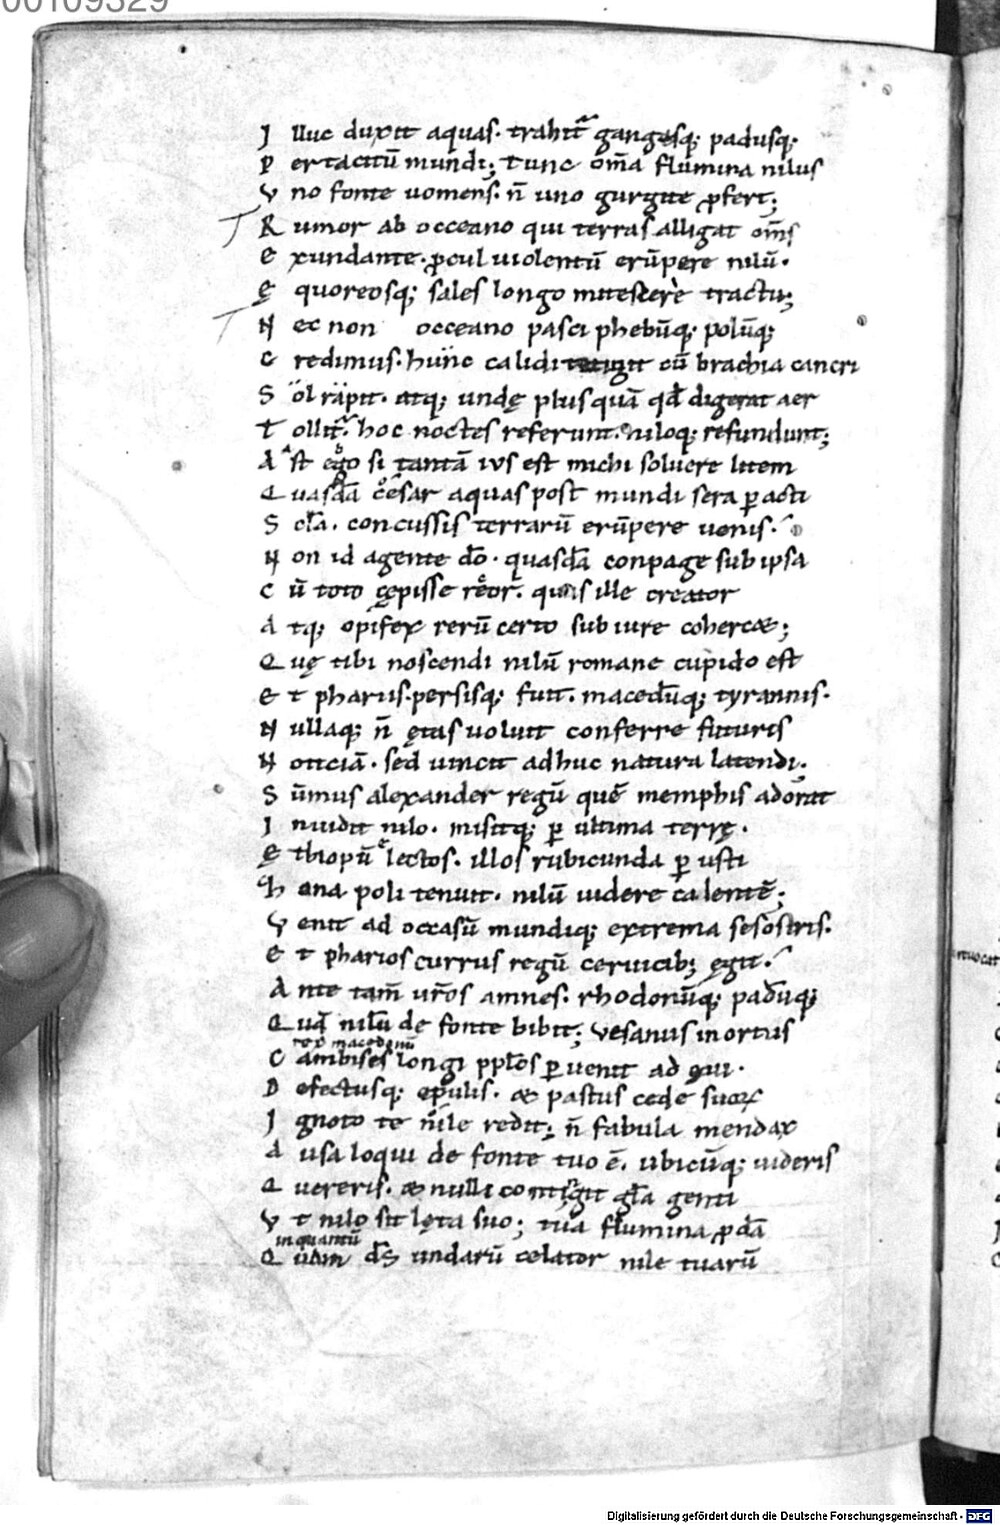 00109329
J lluc duxit aquas. trahit᷑ gangesq; padusq;
P er tacitū mundi; tunc om̄a flumina nilus
V no fonte uomens. n̄ uno gurgite ꝓfert;
R umor ab occeano qui terras alligat om̄s
E xundante. ꝓcul uiolentū erūpere nilū.
Ę quoreosq; sales longo mitescere tractu;
N ec non occeano pasci phebūq; polūq;
C redimus. hunc calidi tetigit cū brachia cancri
S ol rapit. atq; undę plus quā qd̄ digerat aer
T ollit᷑. hoc noctes referunt. niloq; refundunt;
A st ego si tantā ius est michi soluere litem
Q uasdā cesar aquas post mundi sera ꝑacti
S cl̄a. concussis terrarū erūpere uenis.
N on id agente dō. quasdā conpage sub ipsa
C ū toto cępisse reor. quas ille creator
A tq; opifex rerū certo sub iure cohercæ;
Q uę tibi noscendi nilū romane cupido est
E t phariis. persisq; fuit. macedūq; tyrannis.
N ullaq; n̄ ętas uoluit conferre futuris
N oticiā. sed uincit adhuc natura latendi.
S ūmus alexander regū quē memphis adorat
J nuidit nilo. misitq; ꝑ ultima terrę.
Ę thiopū lectos. illos rubicunda ꝑusti
Z ona poli tenuit. nilū uidere calentē;
V enit ad occasū mundiq; extrema sesostris.
E t pharios currus regū ceruicib; ęgit.
A nte tam̄ ur̄os amnes. rhodonūq; padūq;
Q uā nilū de fonte bibit; vesanus in ortus
rex macedonū
C ambises longi ppl̄os ꝑuenit ad ęui.
D efectusq; epulis. æ pastus cede suoꝝ
J gnoto te nile redit; n̄ fabula mendax
A usa loqui de fonte tuo ē. ubicūq; uideris
Q uereris. æ nulli contigit gl̄a genti
V t nilo sit lęta suo; tua flumina ꝓdā
in quantū
Q uam ds̄ undarū celator nile tuarū
Digitalisierung gefördert durch die Deutsche Forschungsgemeinschaft - DFG